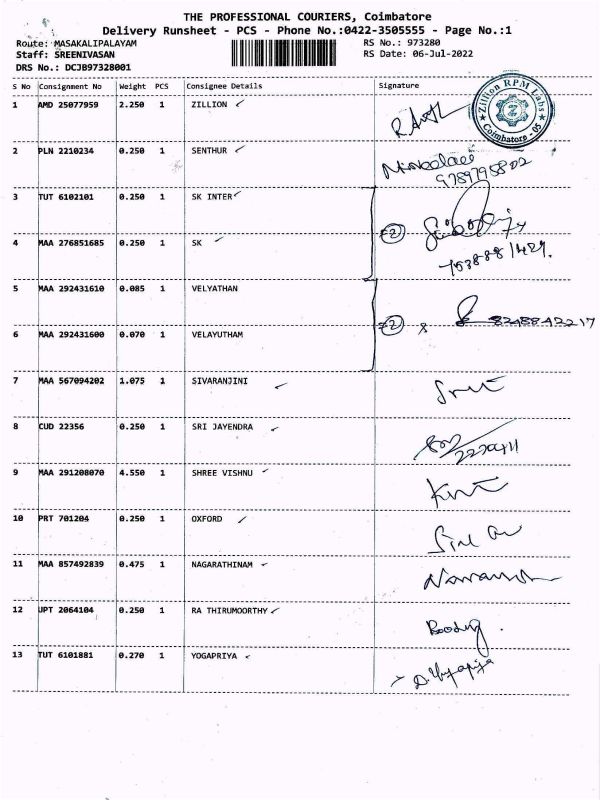 THE PROFESSIONAL COURIERS, Coimbatore
Delivery Runsheet - PCS - Phone No.:0422-3505555 - Page No.:1
Route: MASAKALIPALAYAM RS No.: 973280
Staff: SREENIVASAN RS Date: 06-Jul-2022
DRS No.: DCJB97328001
S No Consignment No Weight PCS Consignee Details Signature
1 AMD 25077959 2.250 1 ZILLION
Zillion RPM Labs
Coimbatore - 05
2 PLN 2210234 0.250 1 SENTHUR
9789795802
3 TUT 6102101 0.250 1 SK INTER
2
4 MAA 276851685 0.250 1 SK
5 MAA 292431610 0.085 1 VELYATHAN
2 8248842217
6 MAA 292431600 0.070 1 VELAYUTHAM
7 MAA 567094202 1.075 1 SIVARANJINI
8 CUD 22356 0.250 1 SRI JAYENDRA
9 MAA 291208070 4.550 1 SHREE VISHNU
10 PRT 701204 0.250 1 OXFORD
11 MAA 857492839 0.475 1 NAGARATHINAM
12 UPT 2064104 0.250 1 RA THIRUMOORTHY
13 TUT 6101881 0.270 1 YOGAPRIYA